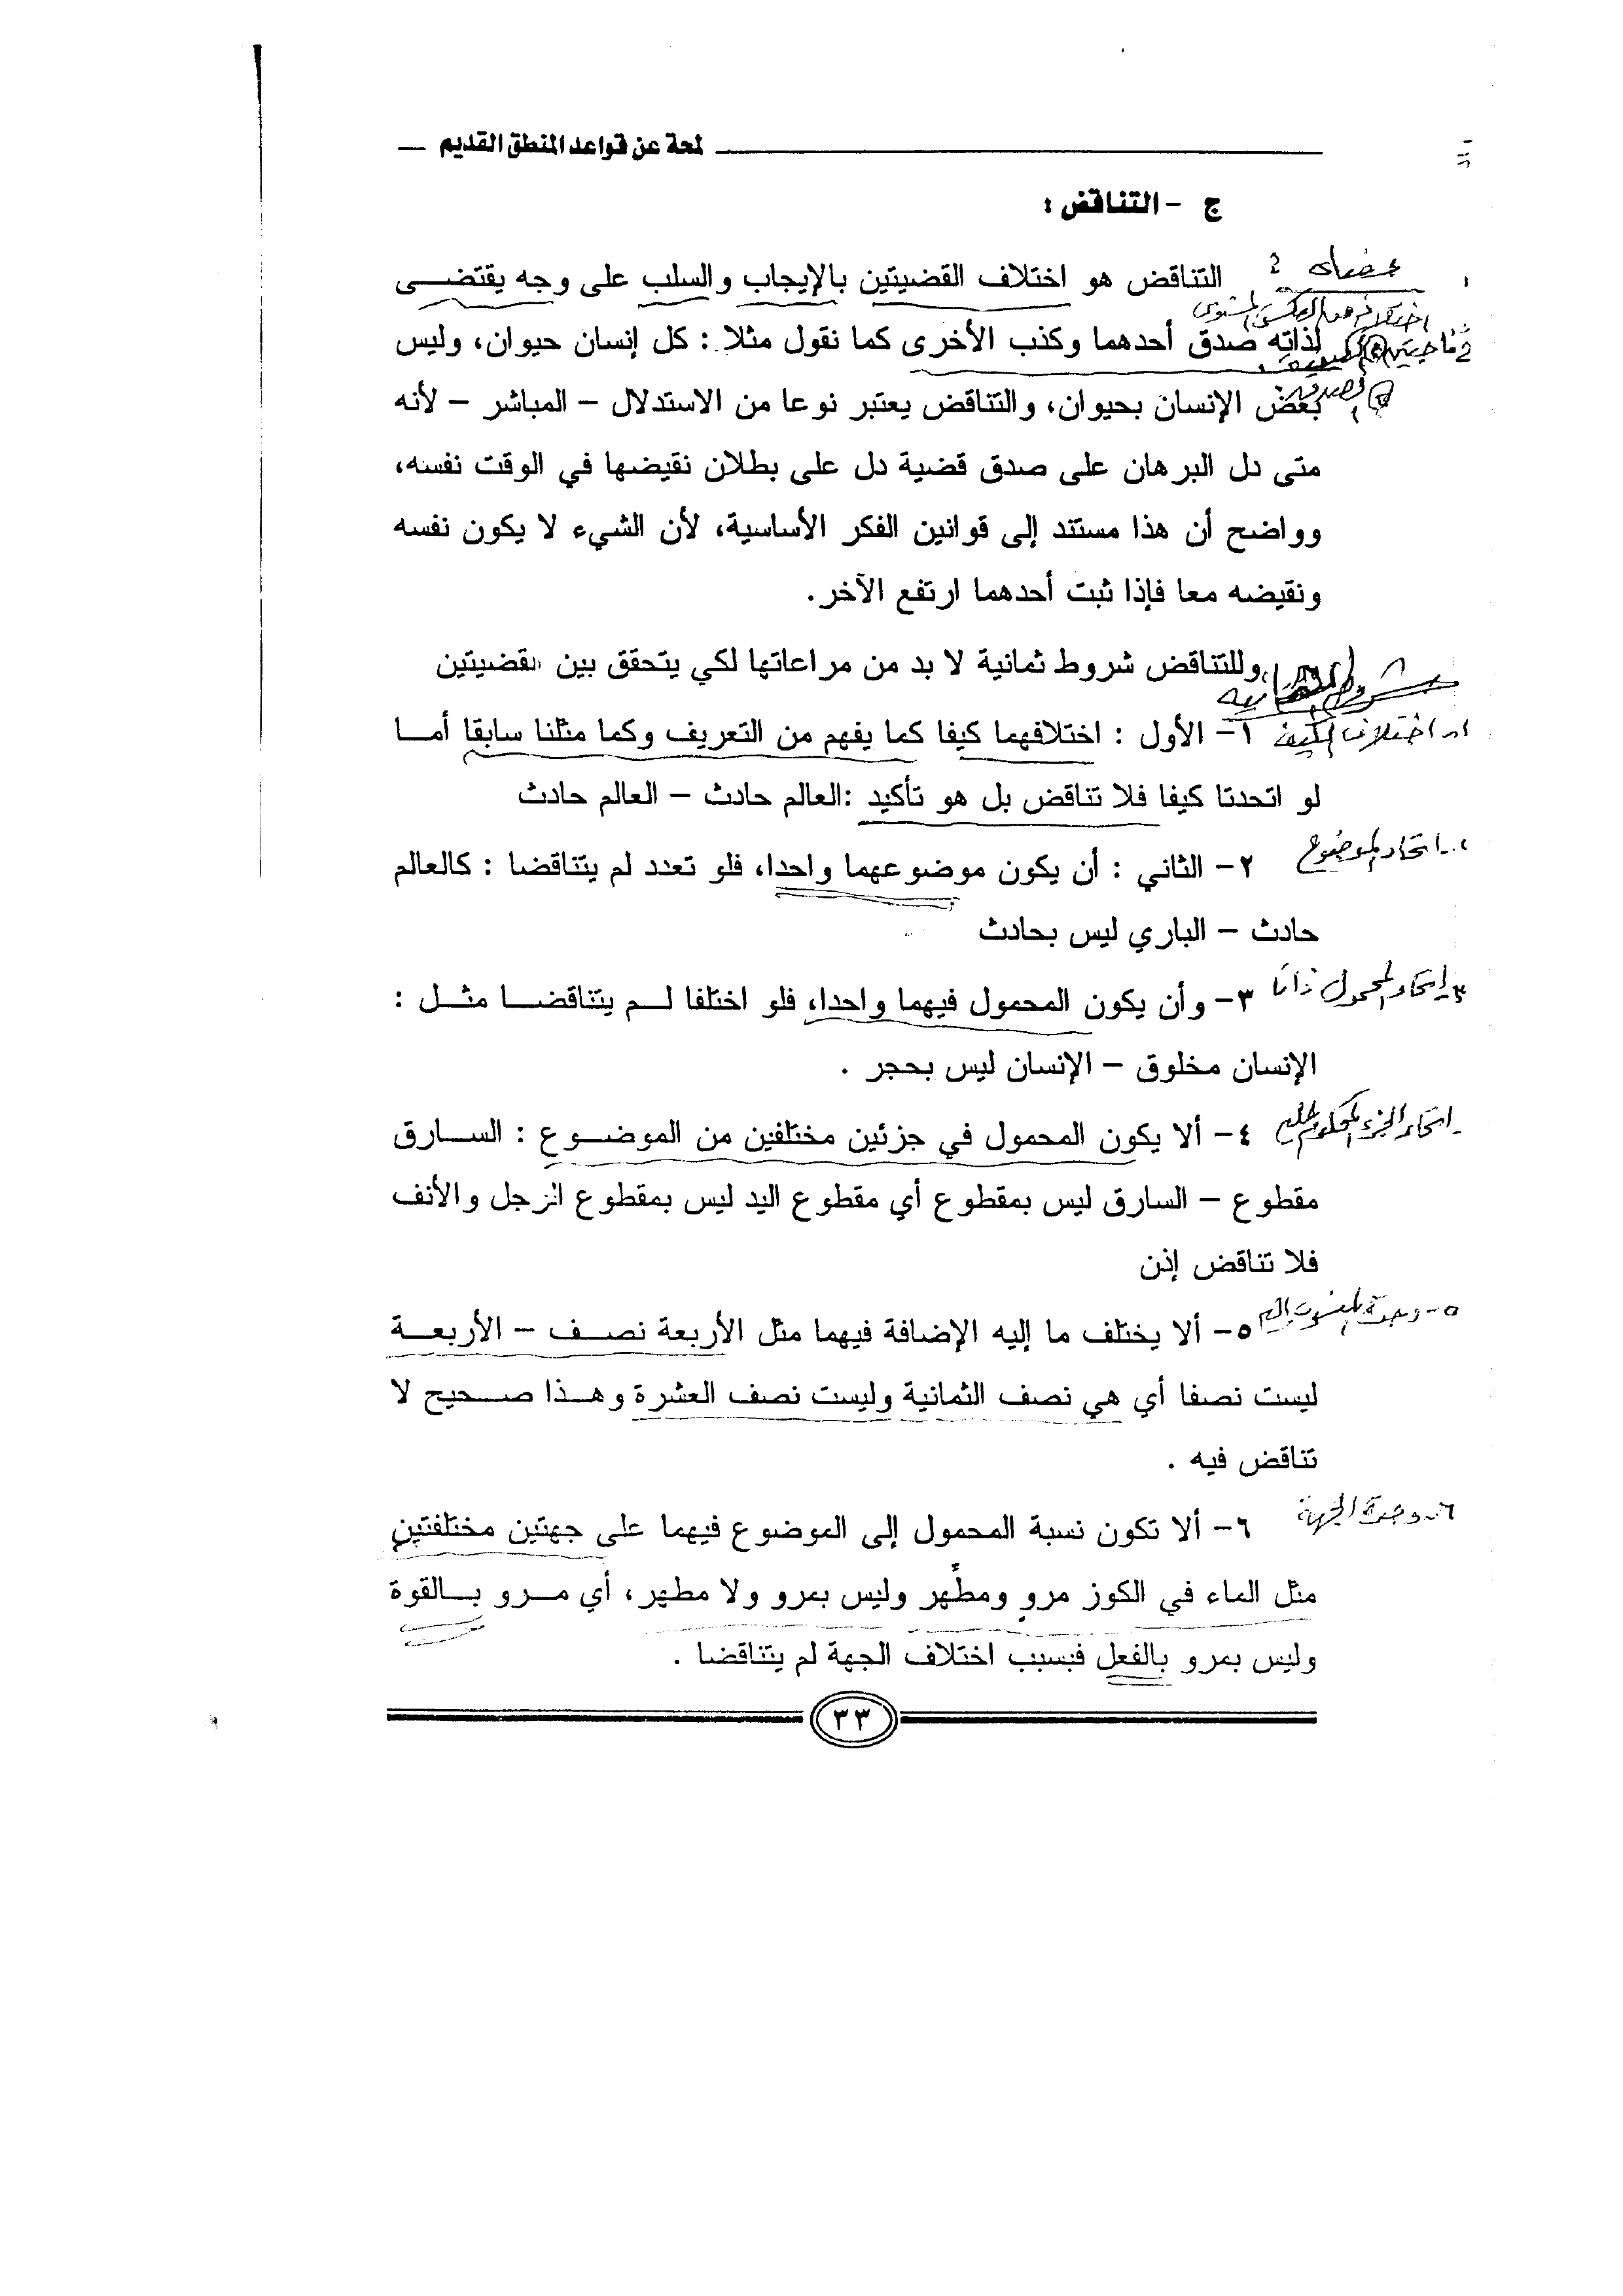 لمحة عن قواعد المنطق القديم
ج - التناقض :
التناقض هو اختلاف القضيتين بالإيجاب والسلب على وجه يقتضى
لذاته صدق أحدهما وكذب الأخرى كما نقول مثلا : كل إنسان حيوان، وليس
بعض الإنسان بحيوان، والتناقض يعتبر نوعا من الاستدلال – المباشر – لأنه
متى دل البرهان على صدق قضية دل على بطلان نقيضها في الوقت نفسه،
وواضح أن هذا مستند إلى قوانين الفكر الأساسية، لأن الشيء لا يكون نفسه
ونقيضه معا فإذا ثبت أحدهما ارتفع الآخر.
وللتناقض شروط ثمانية لا بد من مراعاتها لكي يتحقق بين القضيتين
١- اختلاف الكيف
١– الأول : اختلافهما كيفا كما يفهم من التعريف وكما مثلنا سابقا أما
لو اتحدتا كيفا فلا تناقض بل هو تأكيد :العالم حادث – العالم حادث
اتحاد الموضوع
٢– الثاني : أن يكون موضوعهما واحدا، فلو تعدد لم يتناقضا : كالعالم
حادث – الباري ليس بحادث
٣- اتحاد المحمول ذاتا
٣– وأن يكون المحمول فيهما واحدا، فلو اختلفا لم يتناقضا مثل :
الإنسان مخلوق – الإنسان ليس بحجر .
اتحاد الجزء المحكوم عليه
٤– ألا يكون المحمول في جزئين مختلفين من الموضوع : السارق
مقطوع – السارق ليس بمقطوع أي مقطوع اليد ليس بمقطوع الرجل والأنف
فلا تناقض إذن
٥- وحدة المنسوب إليه
٥– ألا يختلف ما إليه الإضافة فيهما مثل الأربعة نصف – الأربعة
ليست نصفا أي هي نصف الثمانية وليست نصف العشرة وهذا صحيح لا
تناقض فيه .
٦- وحدة الجهة
٦– ألا تكون نسبة المحمول إلى الموضوع فيهما على جهتين مختلفتين
مثل الماء في الكوز مرو ومطهر وليس بمرو ولا مطهر، أي مرو بالقوة
وليس بمرو بالفعل فبسبب اختلاف الجهة لم يتناقضا .
٣٣